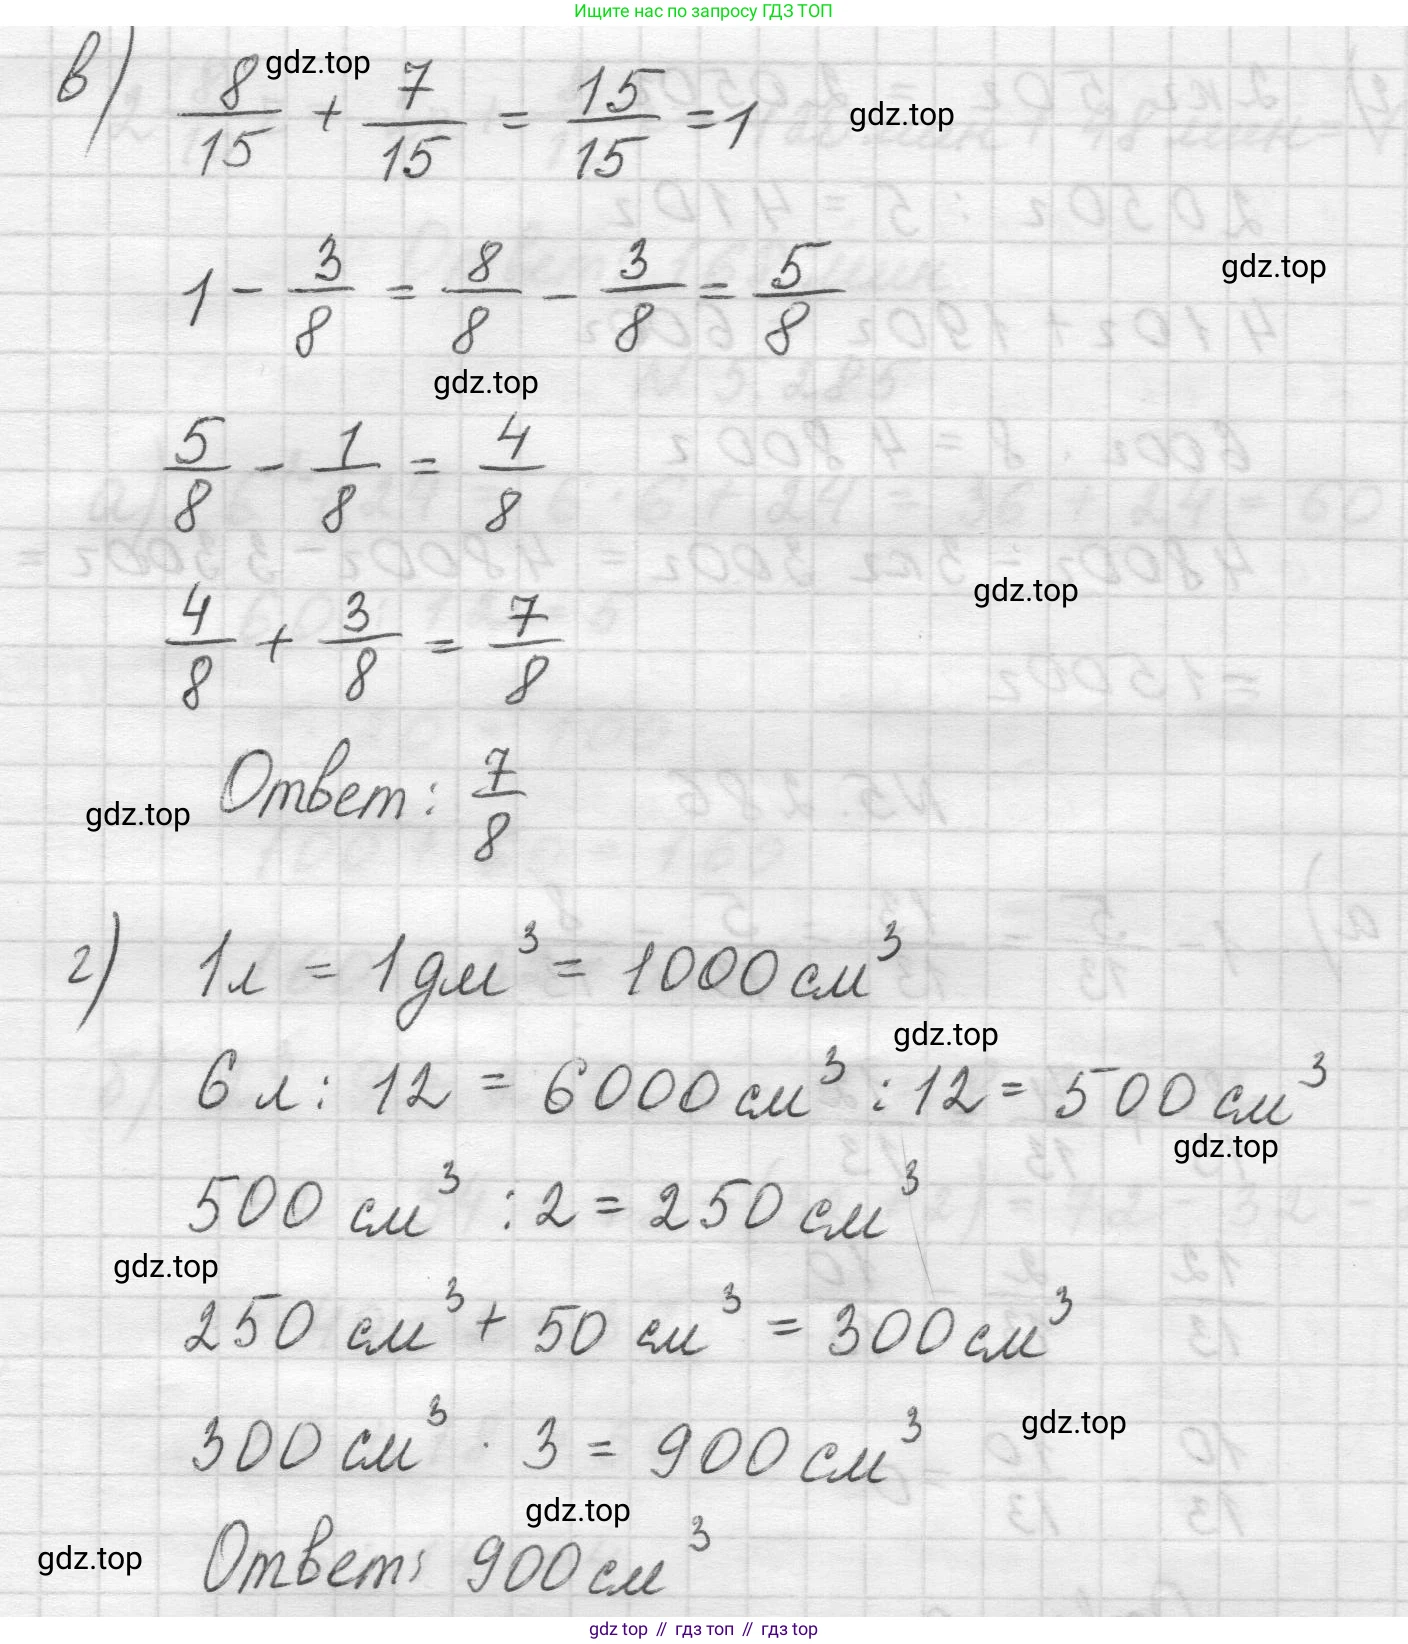 Ищите нас по запросу ГДЗ ТОП
в) 8/15 + 7/15 = 15/15 = 1
gdz.top
gdz.top
1 - 3/8 = 8/8 - 3/8 = 5/8
gdz.top
gdz.top
5/8 - 1/8 = 4/8
gdz.top
4/8 + 3/8 = 7/8
Ответ: 7/8
gdz.top
г) 1л = 1дм³ = 1000 см³
gdz.top
6 л : 12 = 6000 см³ : 12 = 500 см³
gdz.top
500 см³ : 2 = 250 см³
gdz.top
250 см³ + 50 см³ = 300 см³
gdz.top
300 см³ · 3 = 900 см³
gdz.top
gdz.top
Ответ: 900 см³
gdz top // гдз топ // gdz top